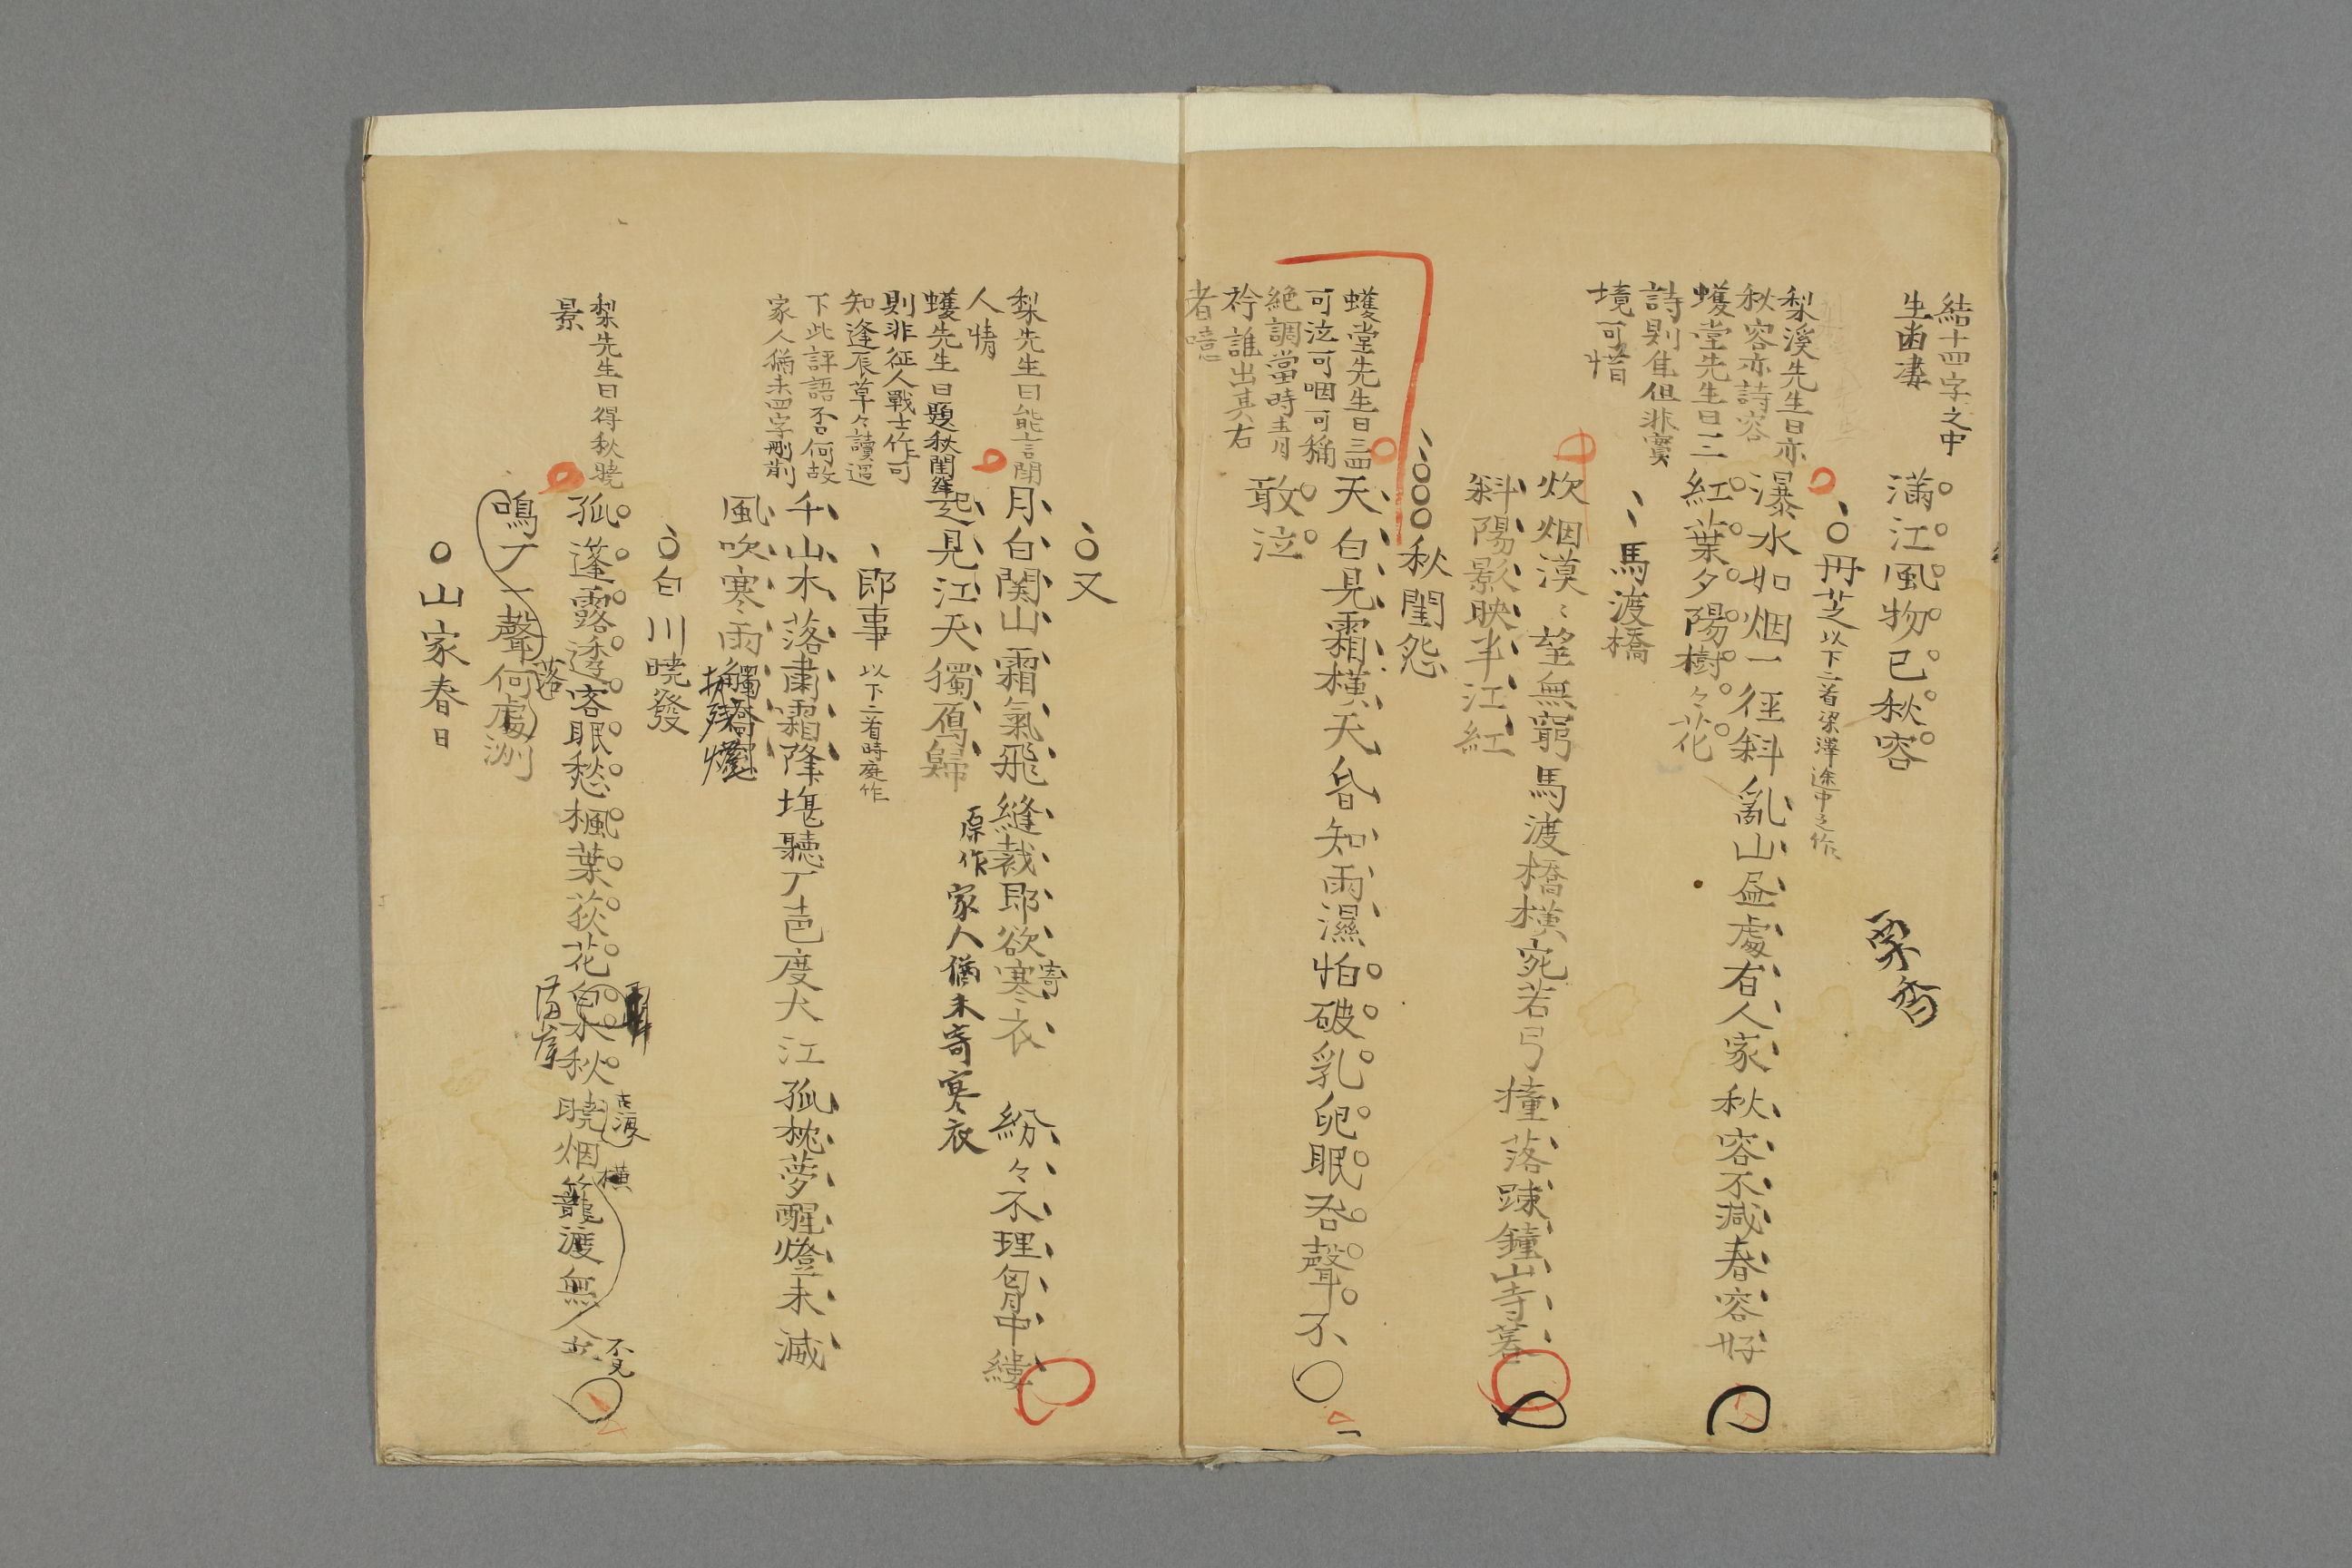 結十四字之中
生凄
滿江風物已秋容
栗香
梨溪先生曰亦
秋容亦詩容
蠖堂先生曰三
詩則佳但非實
境可惜
冊芝以下二首梁澤途中之作
瀑水如烟一徑斜亂山盡處有人家秋容不減春容好
紅葉夕陽樹々花
馬渡橋
炊烟漠々望無窮馬渡橋橫宛若弓撞落疎鐘山寺暮
斜陽影映半江紅
秋閨怨
蠖堂先生曰三四
可泣可咽可稱
絶調當時青
衿誰出其右
者噫
天白見霜橫天昏知雨濕怕破乳兒眠吞聲不
敢泣
又
梨先生曰能言閨
人情
月白関山霜氣飛縫裁即欲寄寒衣紛々不理匈中縷
起見江天獨鴈歸
原作家人猶未寄寒衣
蠖先生曰題秋閨
則非征人戰士作可
知逢辰草々讀過
下此評語否何故
家人猶未四字刪削
即事以下二首時庭作
千山木落肅霜降堪聽丁芭度大江孤枕夢醒燈未滅
風吹寒雨觸
白川曉發
梨先生曰得秋曉
景
孤蓬露透客眠愁楓葉荻花白水秋曉烟籠渡無人
古渡
橫
不見
鳴丁一聲何處洲
落
山家春日